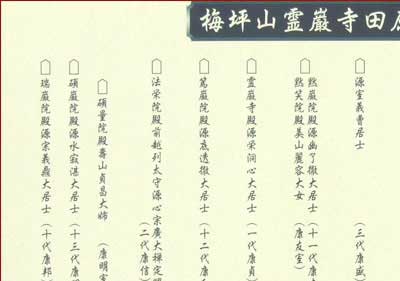 梅坪山霊巌寺田
源室義曹居士 (三代康盛)
黙巌院殿源幽了徹大居士 (十一代康
黙笑院殿美山麗容大女 (康友室)
霊巌寺殿源栄洞心大居士 (一代康貞)
篤巌院殿源底透徹大居士 (十二代康
法栄院殿前越列太守源心宗廣大禅定門
(二代康信)
碩量院殿壽山貞昌大姉 (康明室
碩巌院殿源水寂湛大居士 (十三代康
瑞巌院殿源宗義鼎大居士 (十代康邦)